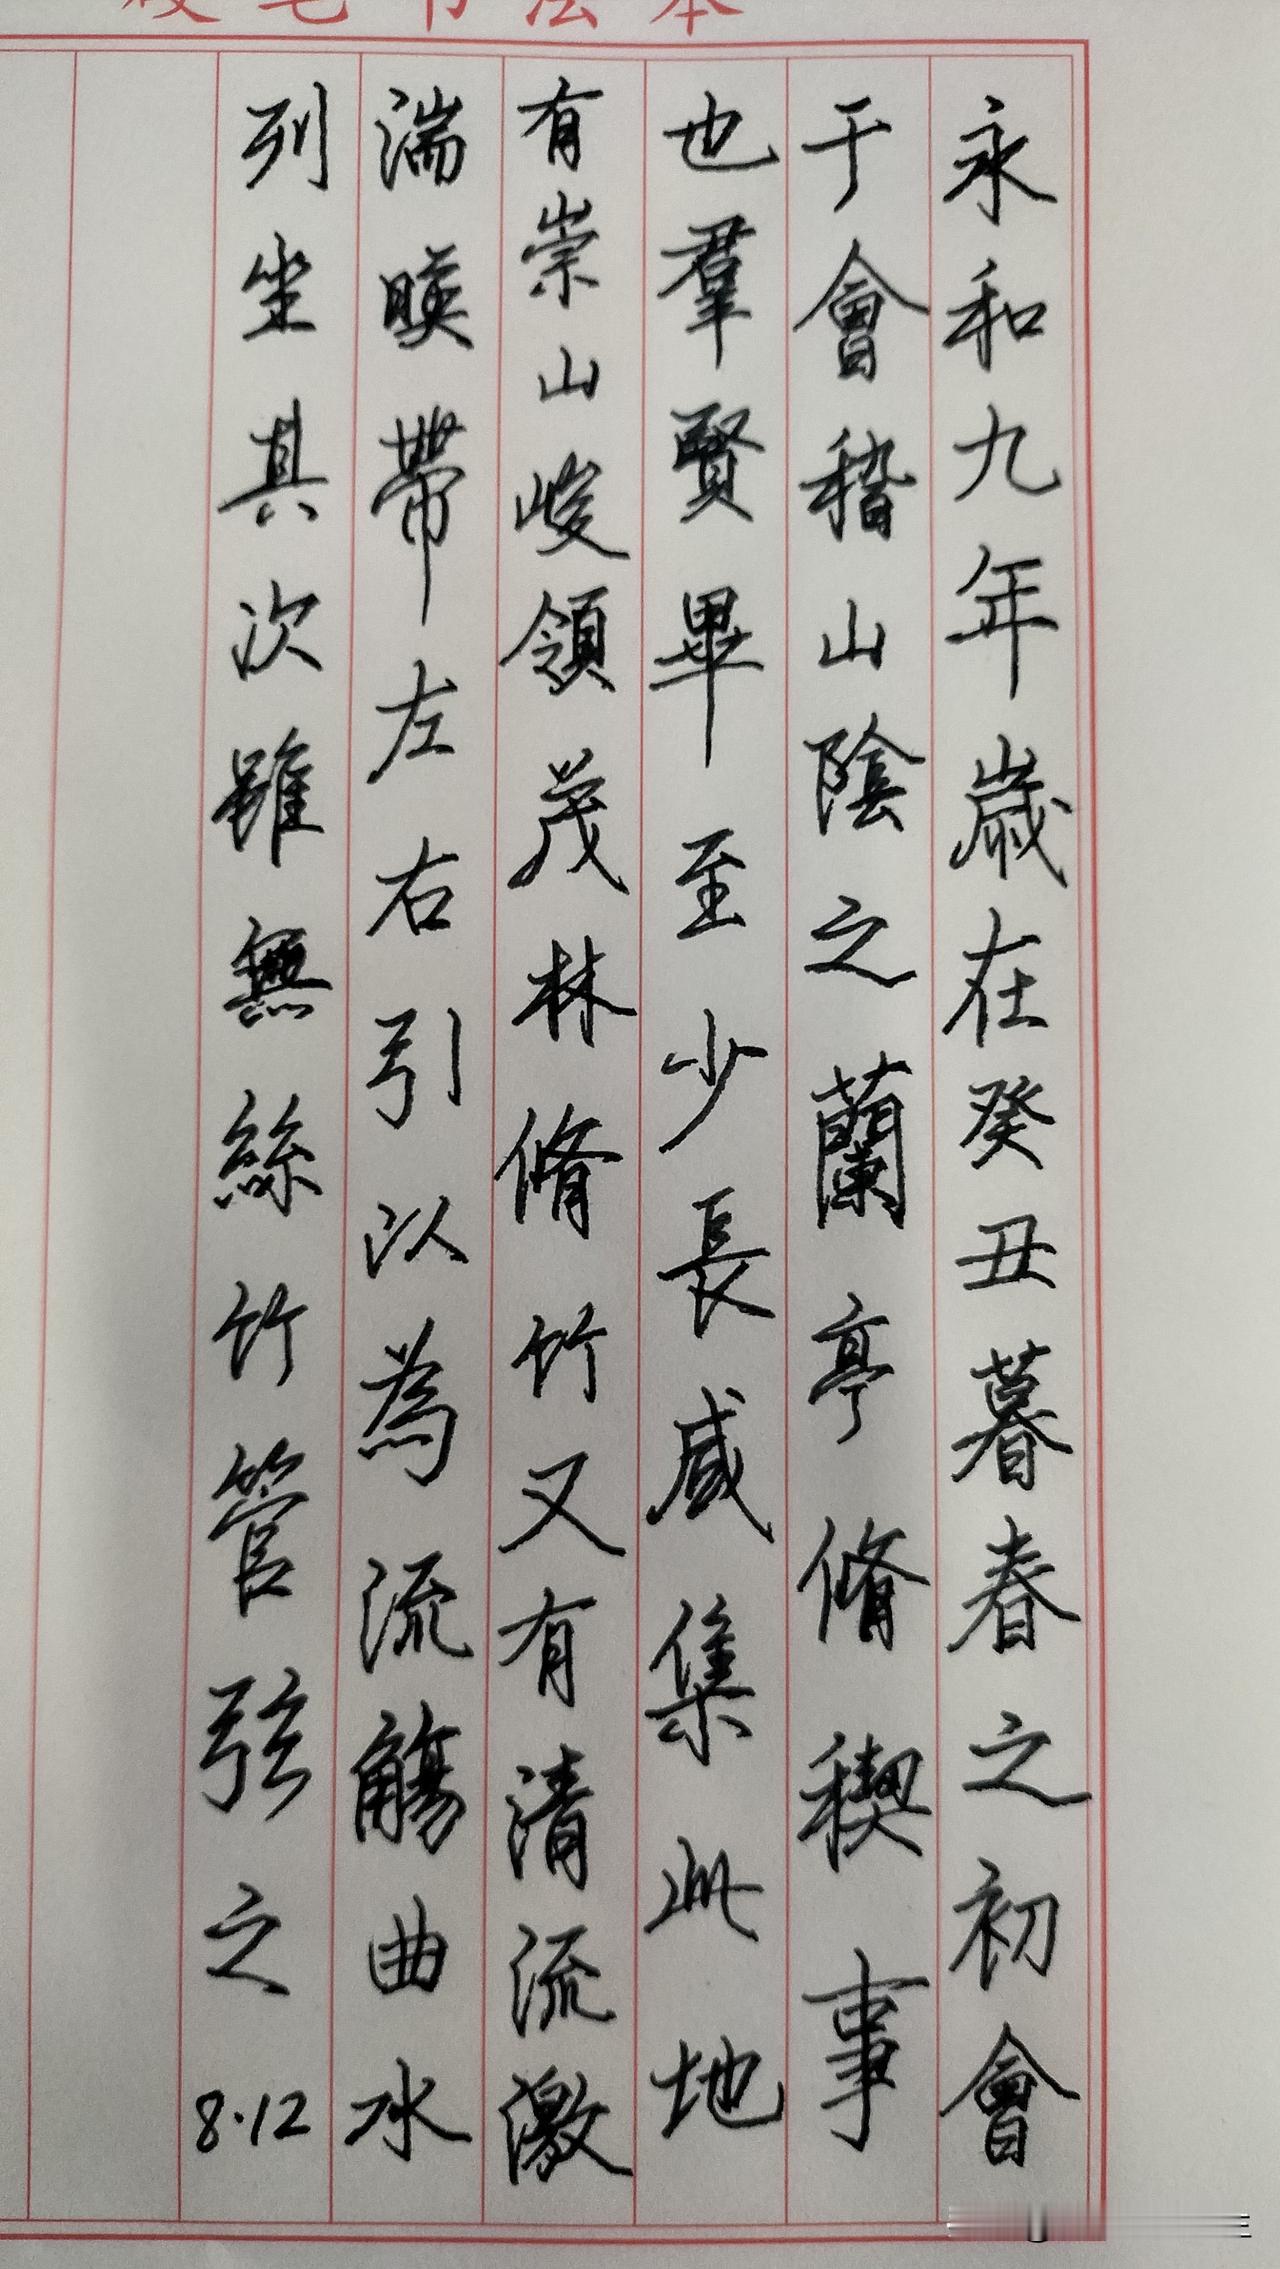 硬笔书法本
永和九年歲在癸丑暮春之初會
于會稽山陰之蘭亭脩稧事
也羣賢畢至少長咸集此地
有崇山峻領茂林脩竹又有清流激
湍暎帶左右引以為流觴曲水
列坐其次雖無絲竹管弦之
8.12